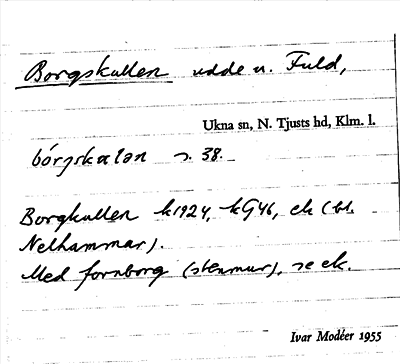 Borgskullen udde v. Fuld,
Ukna sn, N. Tjusts hd, Klm. l.
bórjskɑlən s. 38.
Borgkullen k1924, kG46, ek (bl.
Nelhammar).
Med fornborg (stenmur), se ek.
Ivar Modéer 1955